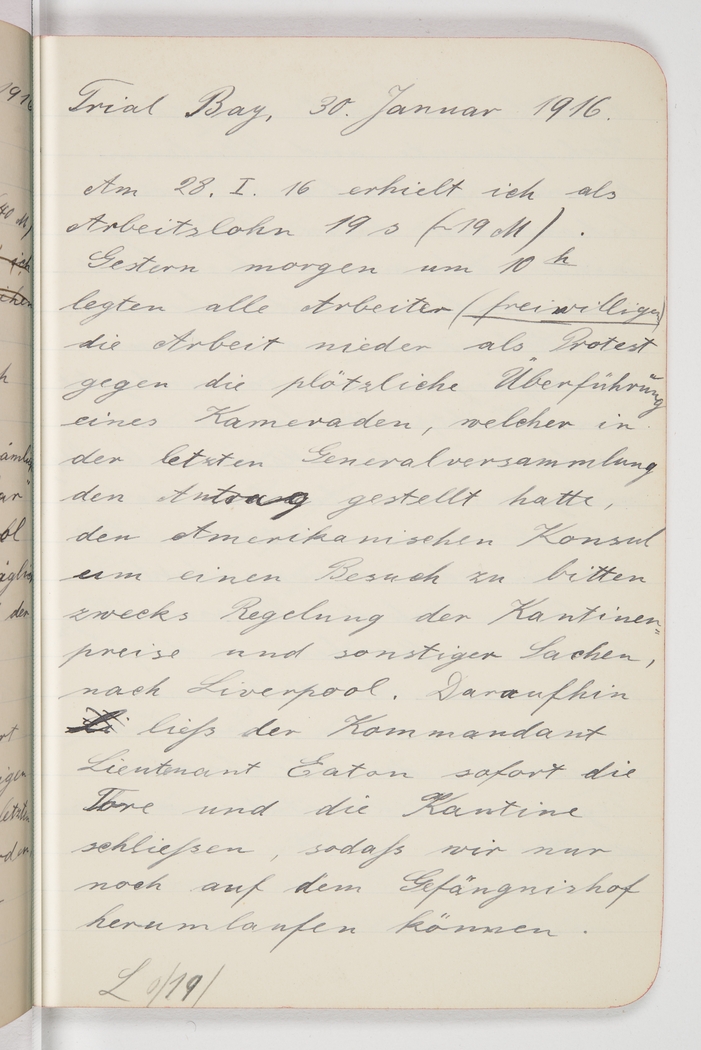 Trial Bay, 30. Januar 1916.
Am 28. I. 16 erhielt ich als
Arbeitslohn 19 s (~19 M).
Gestern morgen um 10 h
legten alle Arbeiter (freiwilligen)
die Arbeit nieder als Protest
gegen die plötzliche Überführung
eines Kameraden, welcher in
der letzten Generalversammlung
den Antrag gestellt hatte,
den Amerikanischen Konsul
um einen Besuch zu bitten
zwecks Regelung der Kantinen=
preise und sonstiger Sachen,
nach Liverpool. Daraufhin
liefs der Kommandant
Lieutenant Eaton sofort die
Tore und die Kantine
schliefsen, sodafs wir nur
noch auf dem Gefängnishof
herumlaufen können.
L 0/19/